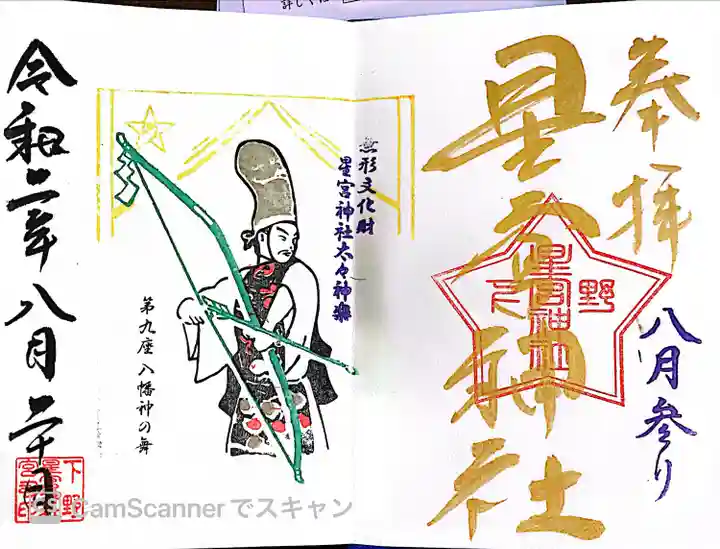 詳しくは
奉拝
星宮神社
野之
星宮神社
八月参り
無形文化財
星宮神社太々神楽
第九座 八幡神の舞
令和二年八月二十日
下野
CamScanner でスキャン